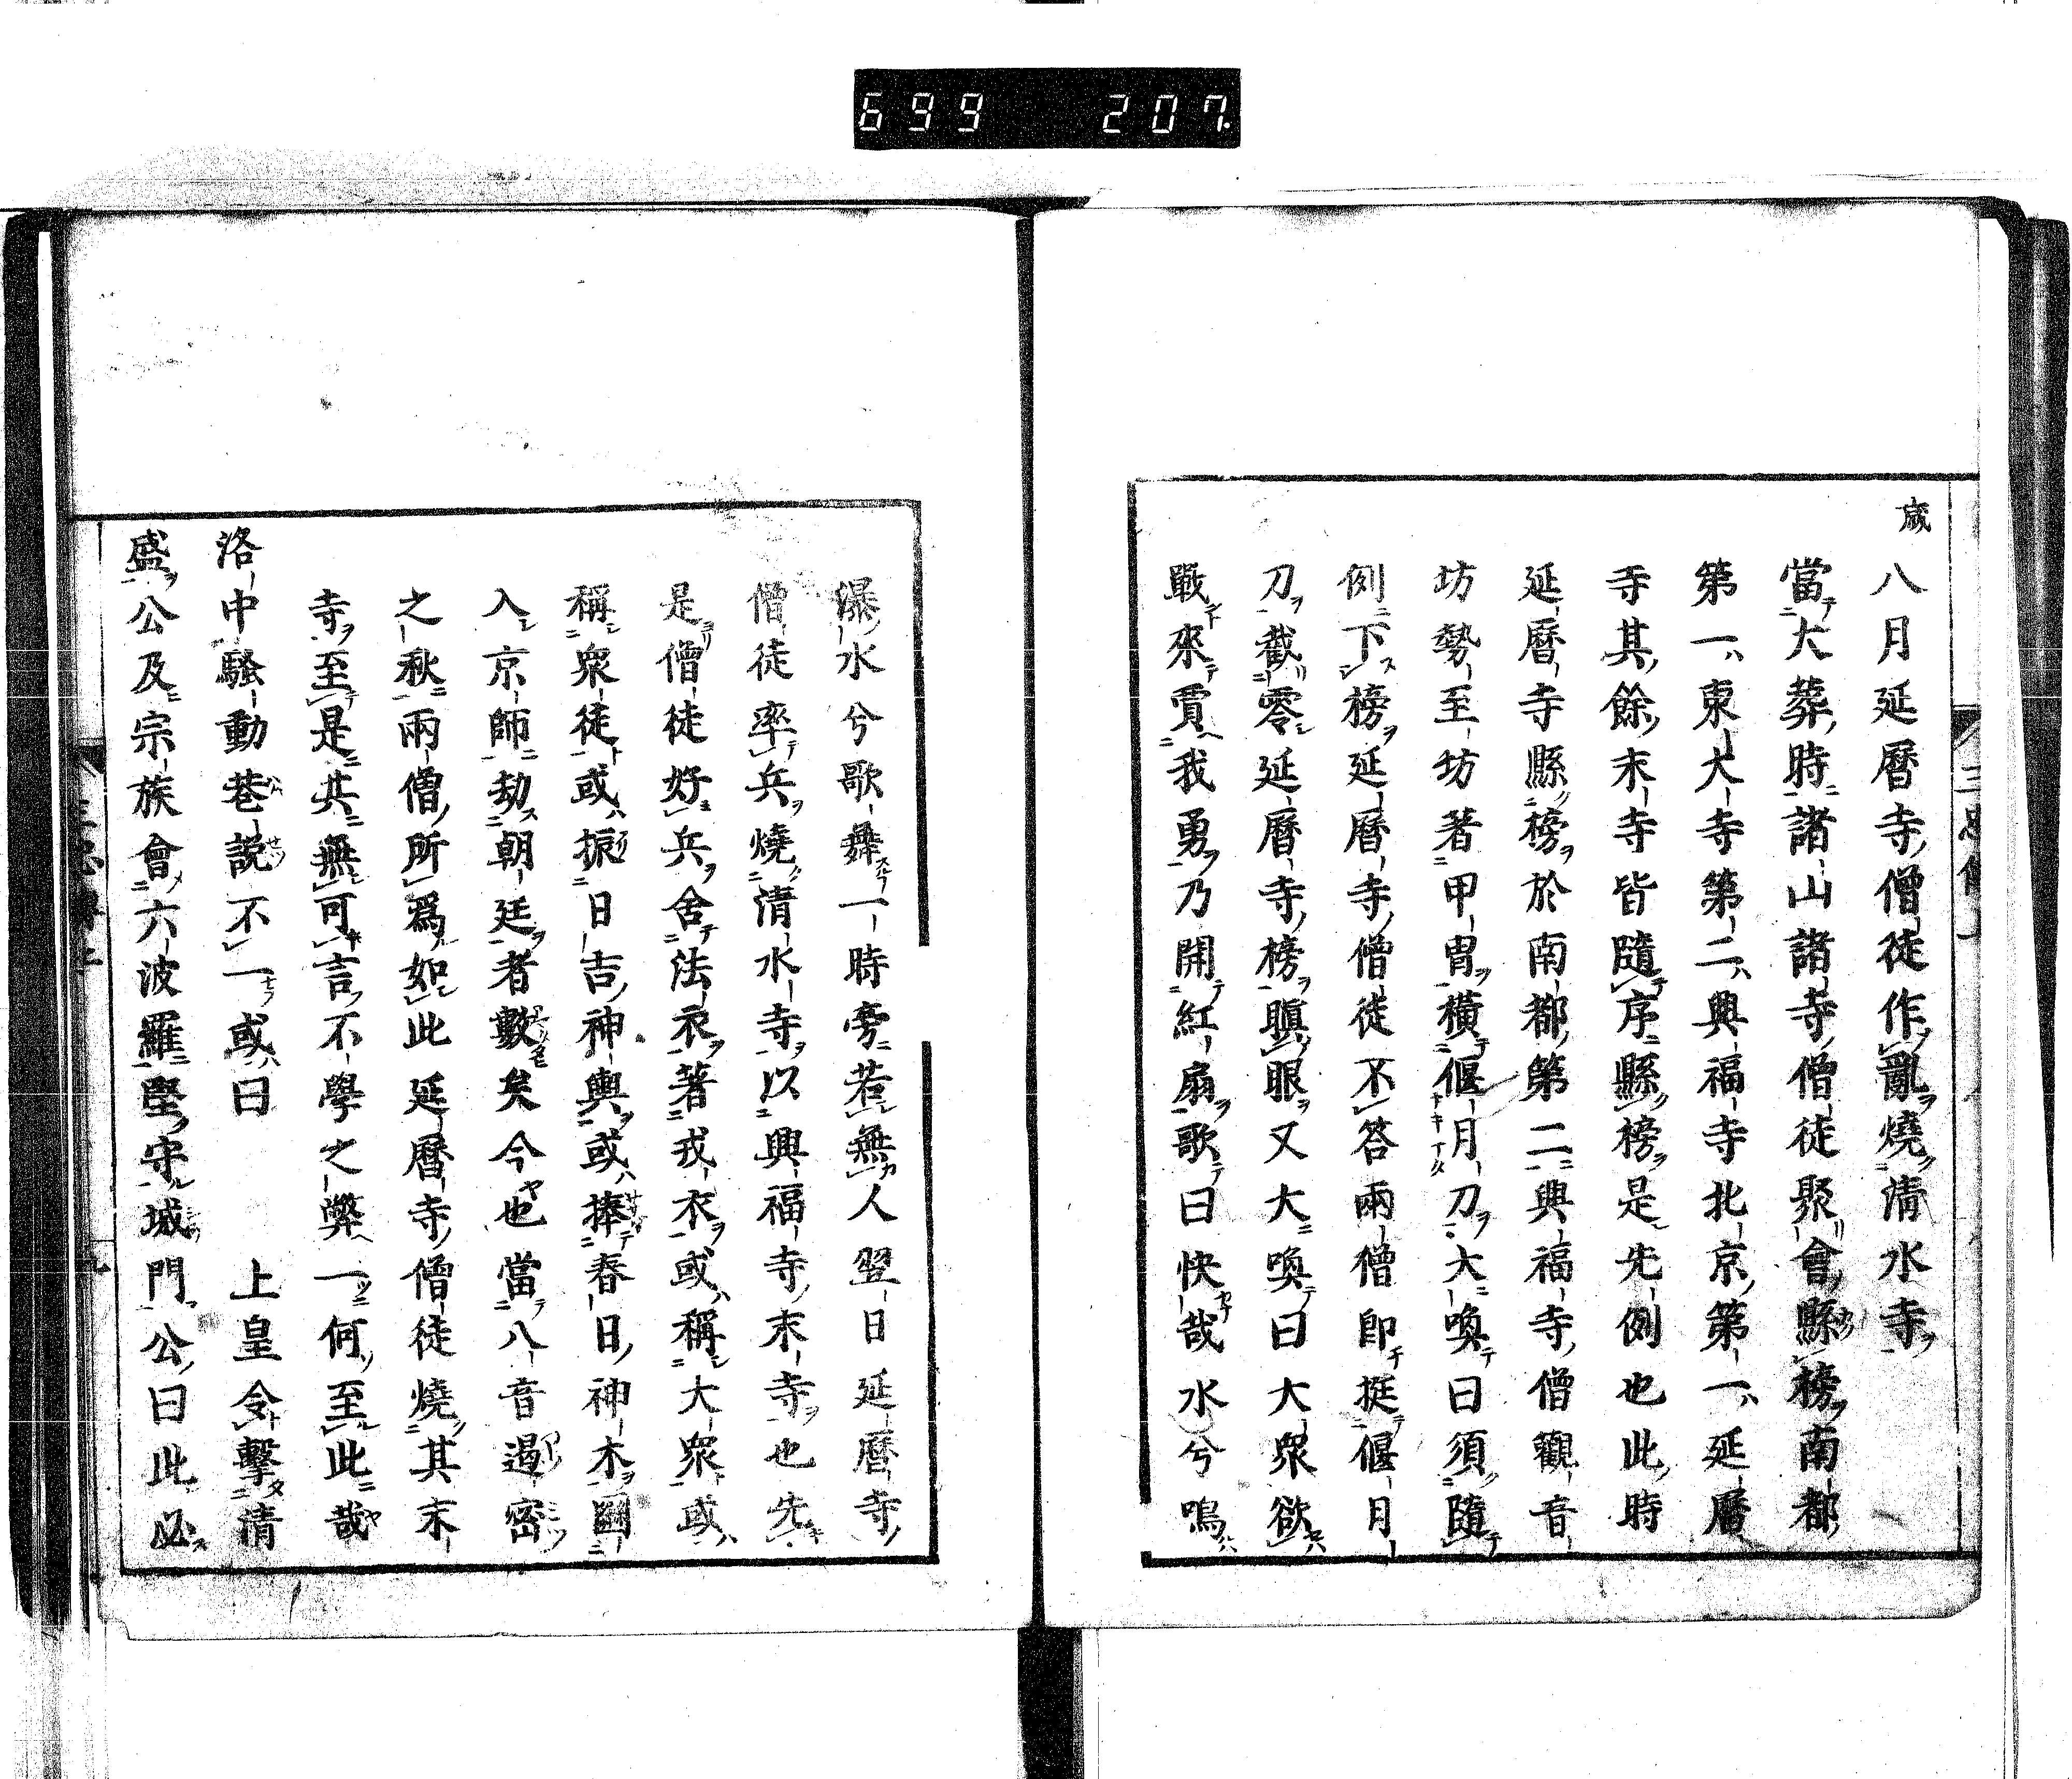 699 207
歳
八月延曆寺僧徒作亂燒清水寺
當大葬時諸山諸寺僧徒聚會縣榜南都
第一東大寺第二興福寺北京第一延曆
寺其餘末寺皆隨序縣榜是先例也此時
延曆寺縣榜於南都第二興福寺僧觀音
坊勢至坊著甲冑橫偃月刀大喚曰須隨
例下榜延曆寺僧徒不答兩僧卽挺偃月
刀截零延曆寺榜瞋眼又大喚曰大衆欲
戰來賈我勇乃開紅扇歌曰快哉水兮鳴
瀑水兮歌舞一時旁若無人翌日延曆寺
僧徒率兵燒清水寺以興福寺末寺也先
是僧徒好兵舍法衣著戎衣或稱大衆或
稱衆徒或振日吉神輿或捧春日神木闌
入京師劫朝廷者數矣今也當八音遏密
之秋兩僧所爲如此延曆寺僧徒燒其末
寺至是共無可言不學之弊一何至此哉
洛中騷動巷說不一或曰 上皇令擊清
盛公及宗族會六波羅堅守城門公曰此必